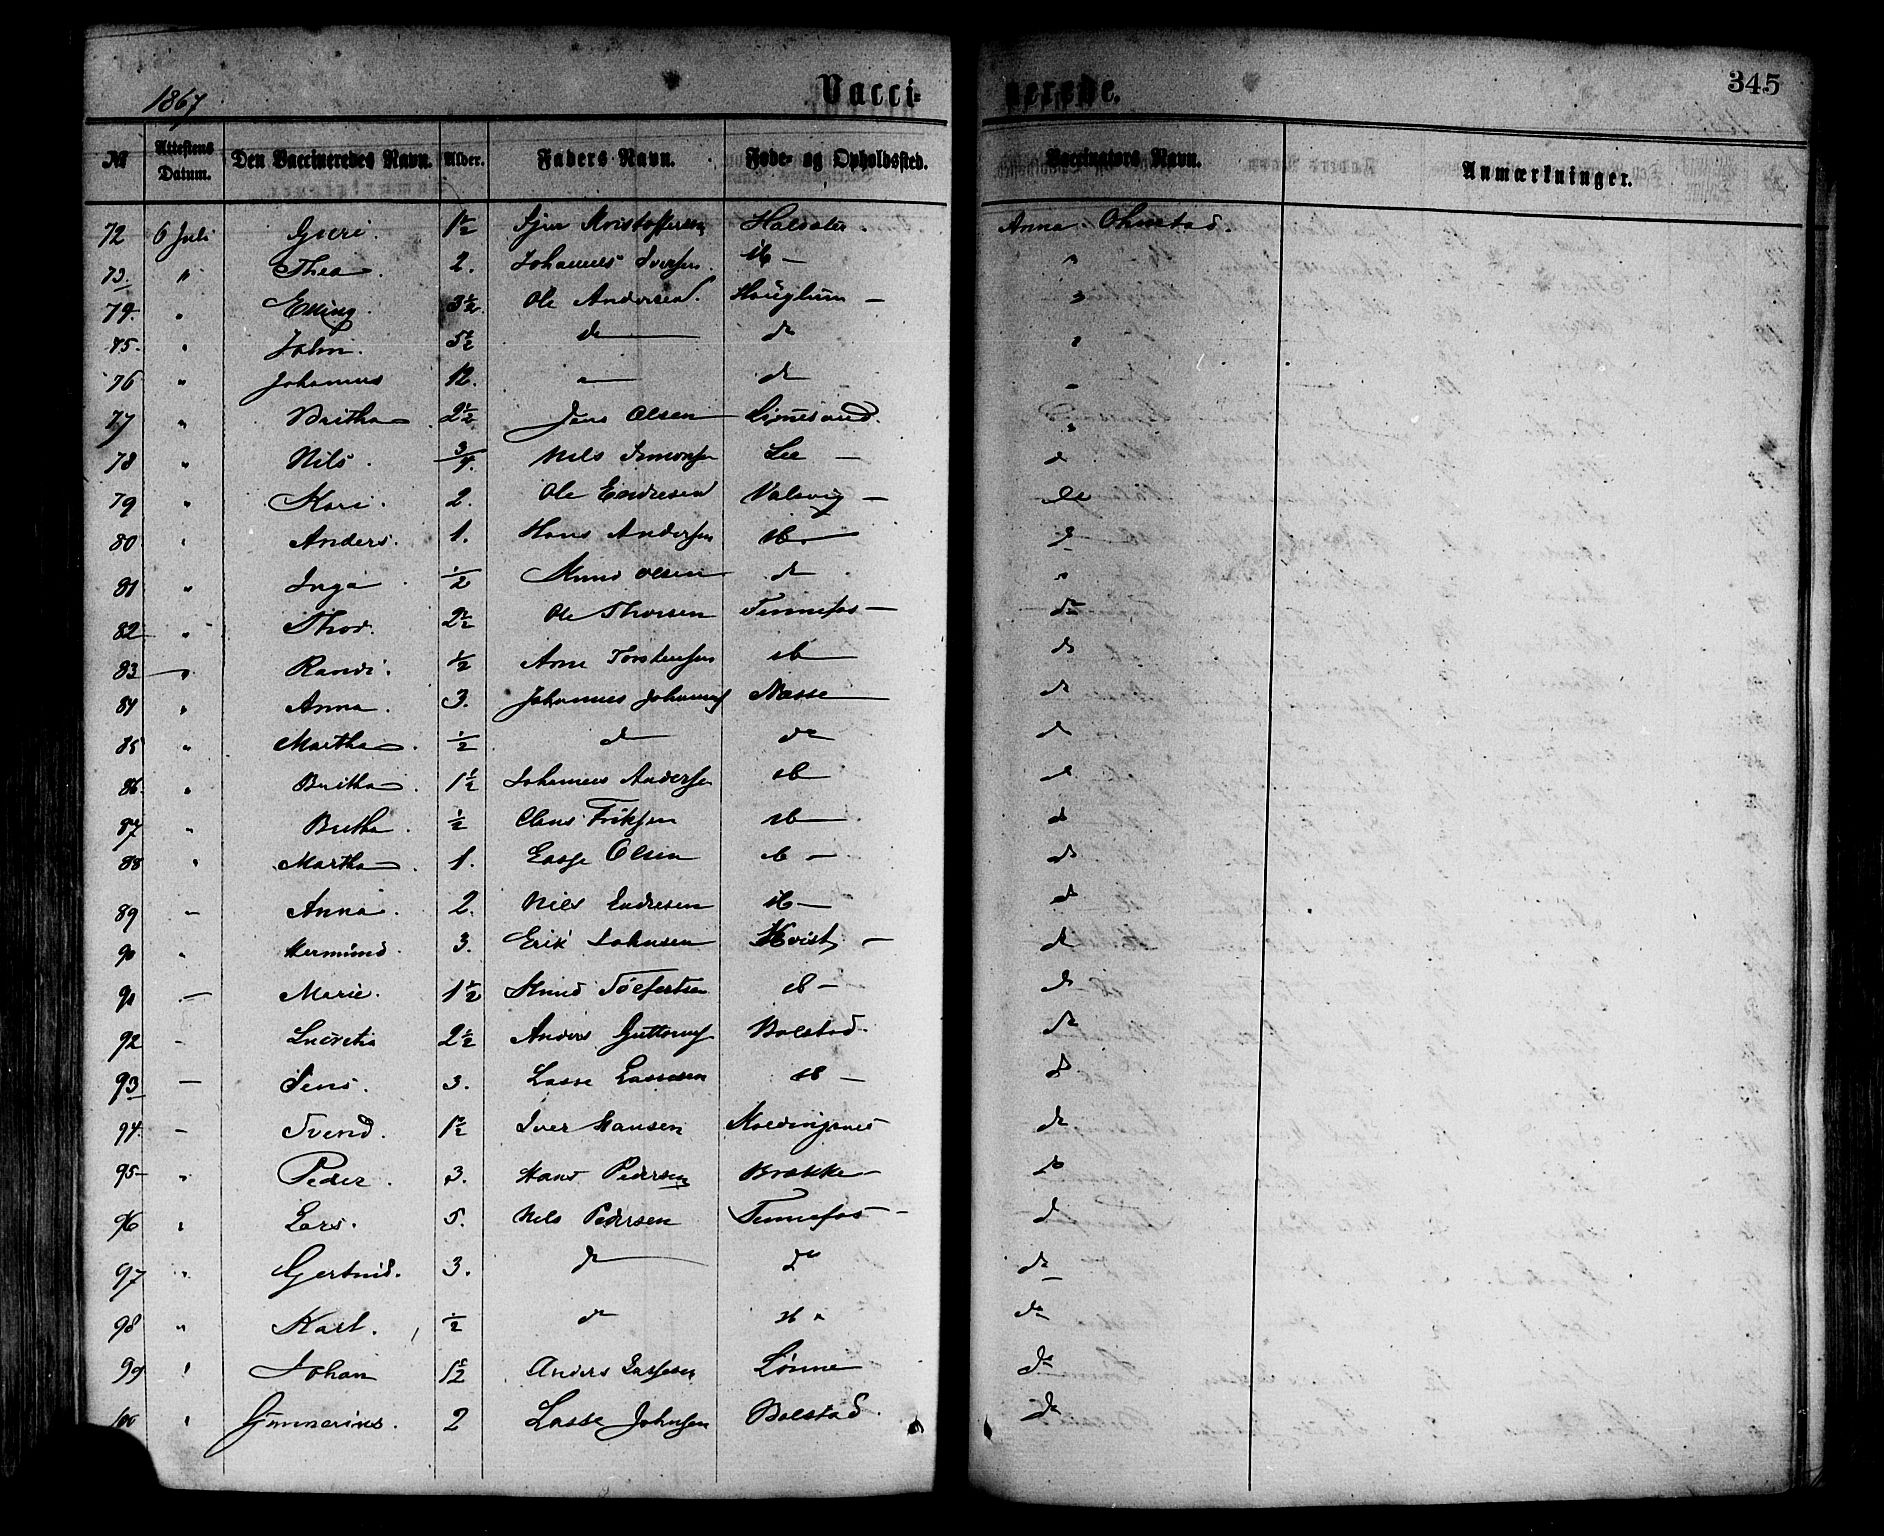 1867 Vacci= nerede. 345
№ Attestens Datum. Den Vaccineredes Navn. Alder. Faders Navn. Føde- og Opholdssted. Vaccinators Navn. Anmærkninger.
72 6 Juli Guri. 1½ Sjur Kristoffersen Anna Ohnstad.
73 " Thea. 2. Johannes Iversen
74. " Elling. 3½ Ole Andersen. Houglum —
75. " John. 5½ do do
76 " Johannes 12. — do
77 " Britha 2½ Jens Olsen
78 " Nils. ¾. Nils Simonsen Lee —
79 " Kari. 2. Ole Endresen Valevig — do
80 " Anders. 1. Hans Andersen ib. do
81 " Inga ½ Knud Olsen do
82 " Thor. 2½ Ole Thorsen Tennefos — do
83 " Randi. ½ Arne Torstensen ib — do
84 " Anna. 3. Johannes Johannes Næsse do
85 " Martha. ½ do do do
86. " Britha. 1½ Johannes Andersen ib do
87 " Britha. ½ Claus Eriksen ib — do
88 " Martha. 1. Lasse Olsen ib — do
89 — Anna. 2. Nils Endresen ib — do
90 " Hermund. 3. Erik Johnsen Kvist — do
91 — Marie. 1½ Knud Tolfertsen ib — do
92 — Lucretia 2½ Anders Guttorms Bolstad. do
93 — Jens. 3. Lasse Lassesen ib — do
94. — Svend. 1½ Iver Hansen do
95 " Peder. 3. Hans Pedersen Brække do
96 " Lars. 5. Nils Pedersen Tennefos — do
97 " Gertrud. 3. do do do
98 " Karl. ½ do ib " do
99 " Johan 1½ Anders Lassesen Lønne do
100 " Gunnerius. 2 Lasse Johnsen Bolstad. do